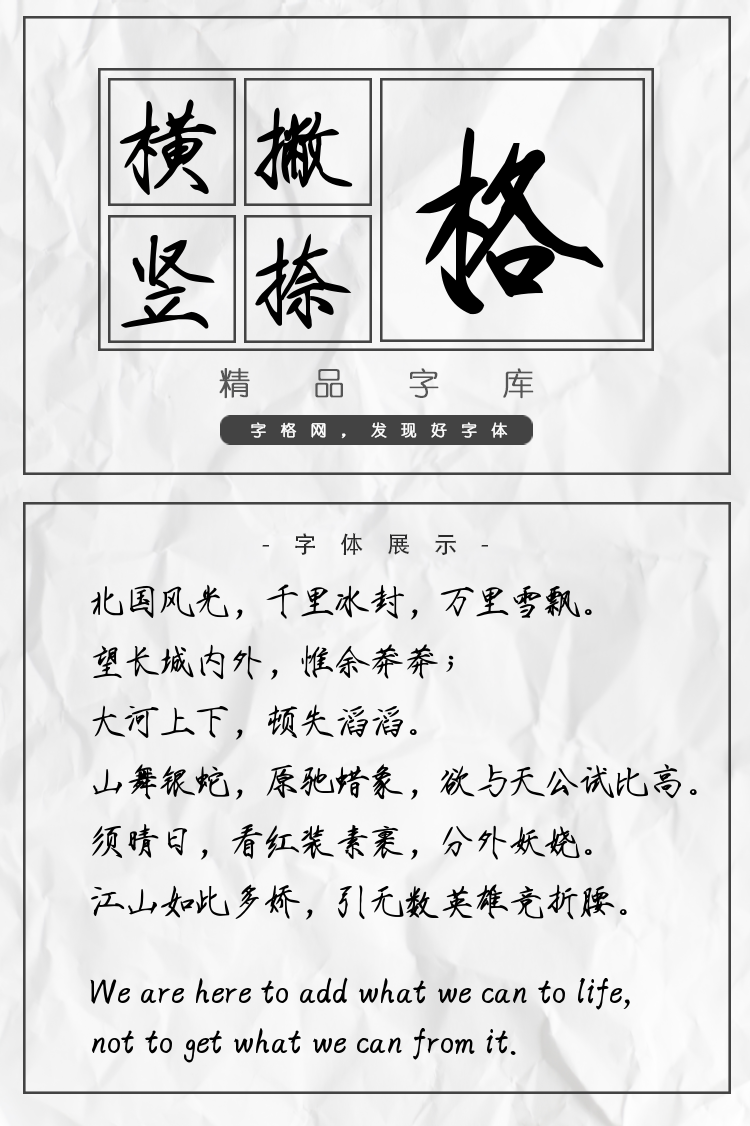 横 撇 格
竖 捺
精品字库
字格网，发现好字体
- 字体展示 -
北国风光，千里冰封，万里雪飘。
望长城内外，惟余莽莽；
大河上下，顿失滔滔。
山舞银蛇，原驰蜡象，欲与天公试比高。
须晴日，看红装素裹，分外妖娆。
江山如此多娇，引无数英雄竞折腰。
We are here to add what we can to life,
not to get what we can from it.